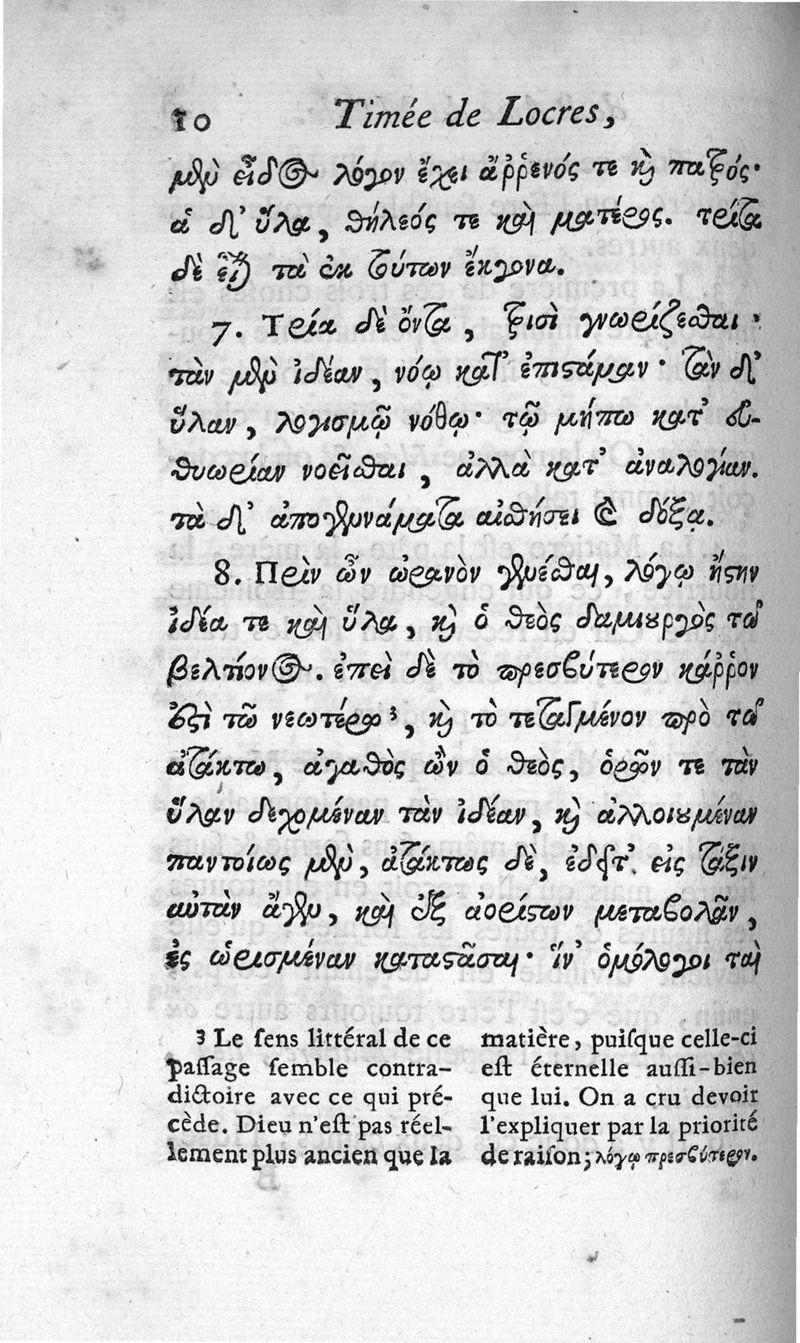 10 Timée de Locres,
μὲν εἶδος λόγον ἔχει ἄῤῥενός τε καὶ πατρός·
ἁ δ' ὕλα, θήλεός τε καὶ ματέρος. τρίτα
δὲ εἶναι τὰ ἐκ τούτων ἔκγονα.
7. Τρία δὲ ὄντα, τρισὶ γνωρίζεσθαι·
τὰν μὲν ἰδέαν, νόῳ κατ' ἐπιστάμαν· τὰν δ'
ὕλαν, λογισμῷ νόθῳ· τῷ μήπω κατ' εὐ-
θυωρίαν νοεῖσθαι, ἀλλὰ κατ' ἀναλογίαν.
τὰ δ' ἀπογεννάματα αἰσθήσει καὶ δόξᾳ.
8. Πρὶν ὦν ὠρανὸν γενέσθαι, λόγῳ ἤστην
ἰδέα τε καὶ ὕλα, καὶ ὁ θεὸς δαμιουργὸς τοῦ
βελτίονος. ἐπεὶ δὲ τὸ πρεσβύτερον κάῤῥον
ἐστὶ τῶ νεωτέρω 3, καὶ τὸ τεταγμένον πρὸ τοῦ
ἀτάκτω, ἀγαθὸς ὢν ὁ θεὸς, ὁρῶν τε τὰν
ὕλαν δεχομέναν τὰν ἰδέαν, καὶ ἀλλοιουμέναν
παντοίως μὲν, ἀτάκτως δὲ, ἐδεῖτ' εἰς τάξιν
αὐτὰν ἄγεν, καὶ ἐξ ἀορίστων μεταβολᾶν,
ἐς ὡρισμέναν καταστᾶσαι· ἵν' ὁμόλογοι ταὶ
3 Le ſens littéral de ce
paſſage ſemble contra-
dictoire avec ce qui pré-
cède. Dieu n'eſt pas réel-
lement plus ancien que la
matière, puiſque celle-ci
eſt éternelle auſſi-bien
que lui. On a cru devoir
l'expliquer par la priorité
de raiſon; λόγῳ πρεσβύτερον.